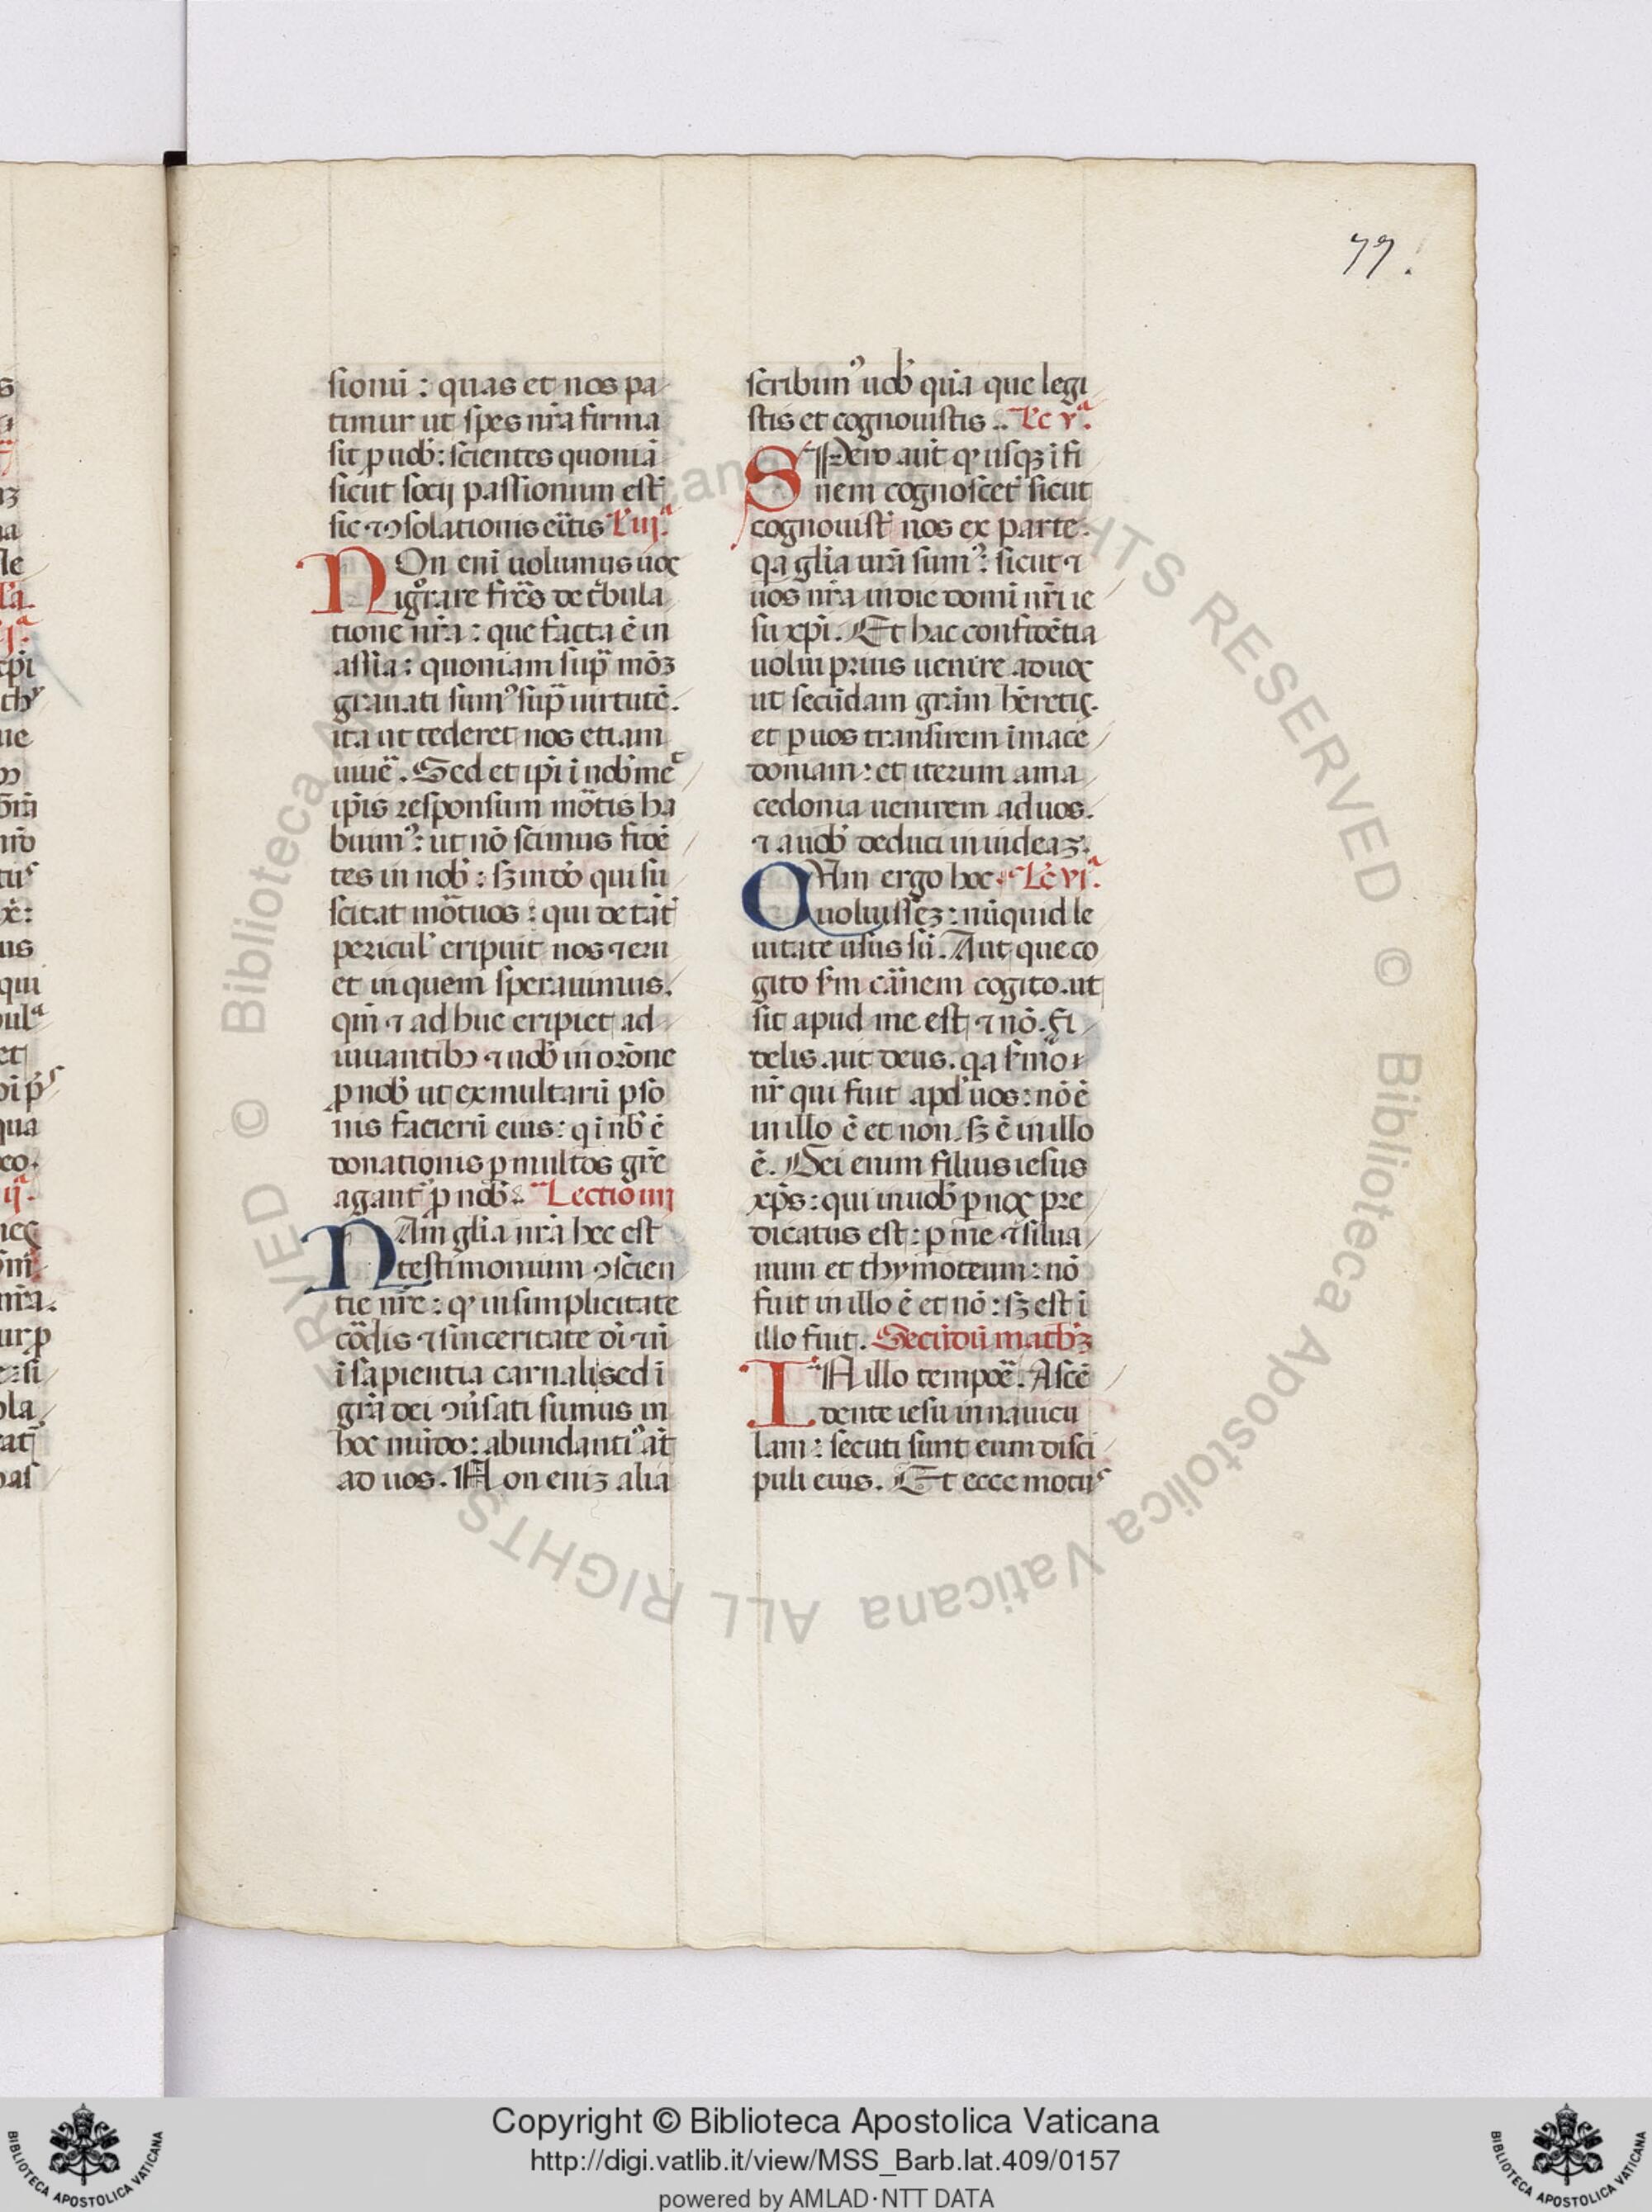 77.
sionū : quas et nos pa
timur ut spes nr̄a firma
sit ꝓ uob̄ : scientes quoniā
sicut socij passionum est̄
sic ⁊ ↄsolationis eītis L̄ iijᵃ
NOn enī uolumus uos
igͦrare fr̄es de tͥbula
tione nr̄a : que facta ē in
assia : quoniam sup̄ modꝫ
grauati sumꝰ sup̄ uirtutē.
ita ut tederet nos etiam
uiuē. Sed et ip̄i ī nob̄ meᵗ
ip̄is responsum moͬtis ha
buimꝰ : ut nō scimus fidē
tes in nob̄ : sꝫ in dō qui su
scitat moͬtuos : qui de tāt̄
pericul̄ eripuit nos ⁊ eru
et in quem sperauimus.
qm̄ ⁊ ad huc eripiet ad
iuuantibꝫ ⁊ uob̄ in orōne
ꝓ nob̄ ut ex multarū ꝑso
nis facierū eius : q ī nb̄ ē
donationis ꝑ multos gr̄e
agant̄ ꝓ nob̄. Lectio iiij
NAm glīa nr̄a hec est
testimonium ↄscien
tie nr̄e : ꝙ in simplicitate
coͬdis ⁊ sinceritate dī ⁊ n̄
ī sapientia carnali sed ī
gr̄a dei ↄu̓sati sumus in
hoc mūdo : abundantiꝰ at̄
ad uos. Non enīꝫ alia
scribimꝰ uob̄ quā que legi
stis et cognouistis .. Lc̄ vᵃ.
SPero aut̄ ꝙ usqꝫ ī fi
nem cognoscet̄ sicut
cognouist̄ nos ex parte.
qa glīa ur̄a sumꝰ : sicut ⁊
uos nr̄a in die domī nr̄i ie
su xp̄i. Et hac confidētia
uolui prius uenire ad uos
ut secūdam gr̄am hēretis.
et ꝑ uos transirem ī mace
doniam : et iterum a ma
cedonia uenirem ad uos.
⁊ a uob̄ deduci in iudeaꝫ.
QUm ergo hoc Lc̄ viᵃ.
uoluissēꝫ : nūquid le
uitate usus sū. Aut que co
gito sm̄ car̄nem cogito. ut
sit apud me est ⁊ nō. Fi
delis aut deus. qa s̄mo
nr̄ qui fuit apd̄ uos : nō ē
in illo ē et non. sꝫ ē in illo
ē. Dei enim filius iesus
xp̄s : qui in uob̄ ꝑ nos pre
dicatus est : ꝑ me ⁊ silua
num et thymoteum : nō
fuit in illo ē et nō : sꝫ est ī
illo fuit. Secūdū math̄ꝫ
IN illo tempoē. Ascē
dente iesu in nauicu
lam : secuti sunt eum disci
puli eius. Et ecce motuˢ
© Biblioteca Apostolica Vaticana ALL RIGHTS RESERVED © Biblioteca Apostolica Vaticana ALL RIGHTS RESERVED
Copyright © Biblioteca Apostolica Vaticana
http://digi.vatlib.it/view/MSS_Barb.lat.409/0157
powered by AMLAD·NTT DATA
BIBLIOTECA APOSTOLICA VATICANA
BIBLIOTECA APOSTOLICA VATICANA